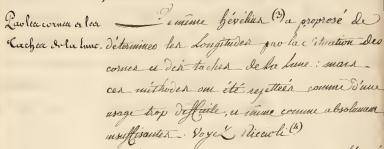 Par les cornes et les taches de la lune.
Le même Hévélius (3) a proposé de
déterminer les Longitudes par la situation des
cornes et des taches de la Lune : mais
ces méthodes ont été rejettées comme d'une
usage trop difficile, et même comme absolument
insuffisantes. Voyez Riccioli (4)